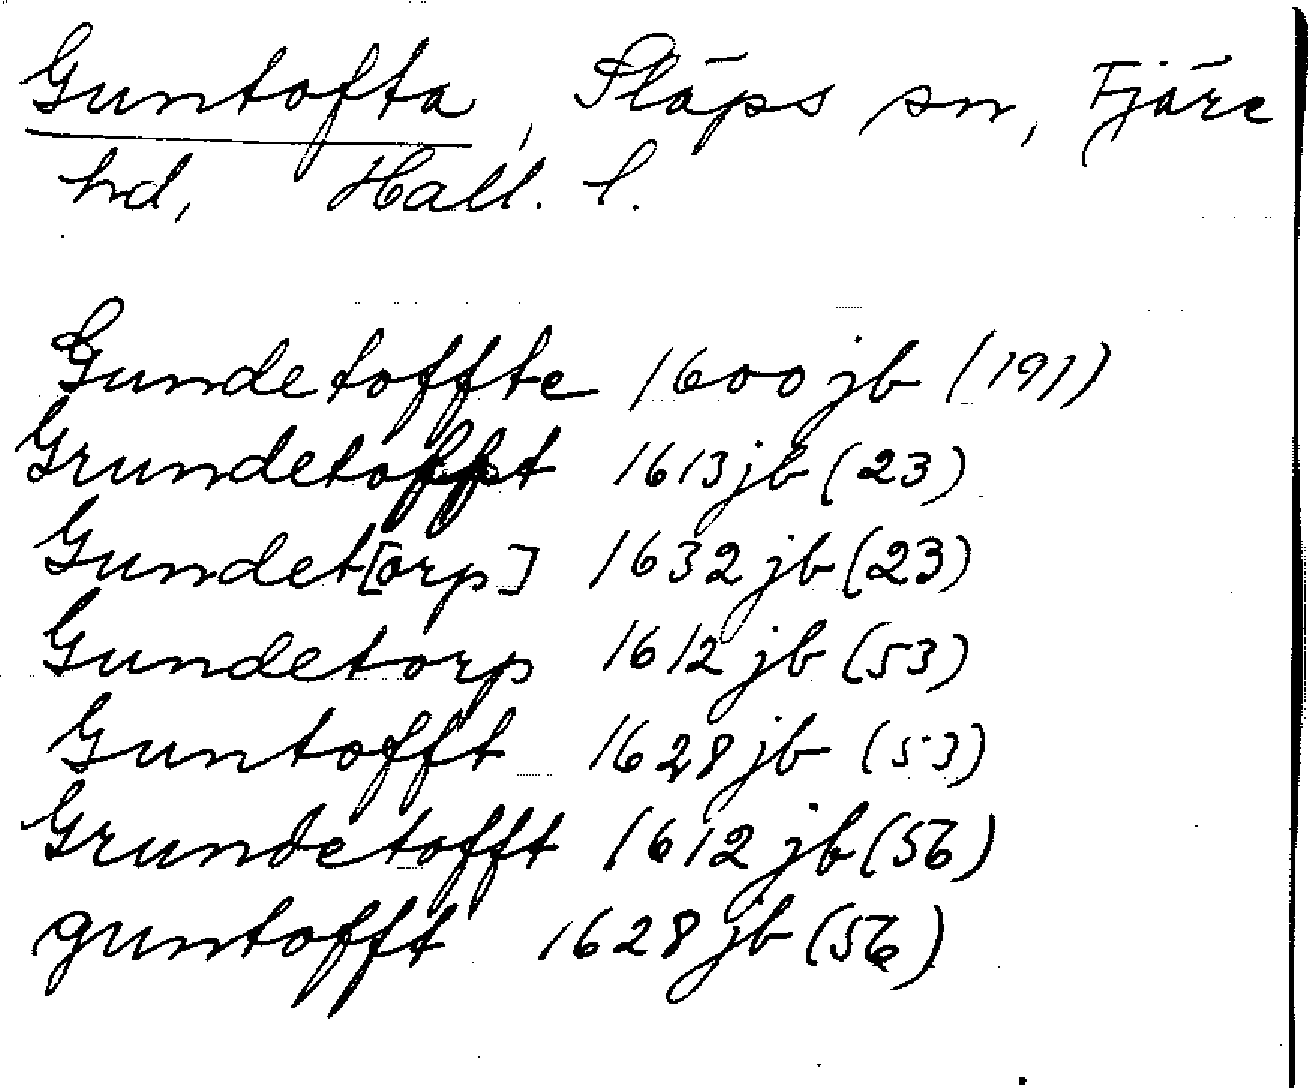 Guntofta, Släps sn, Fjäre
hd, Hall. l.
Gundetoffte 1600 jb (191)
Grundetofft 1613 jb (23)
Gundet[orp] 1632 jb (23)
Gundetorp 1612 jb (53)
Guntofft 1628 jb (53)
Grundetofft 1612 jb (56)
guntofft 1628 jb (56)